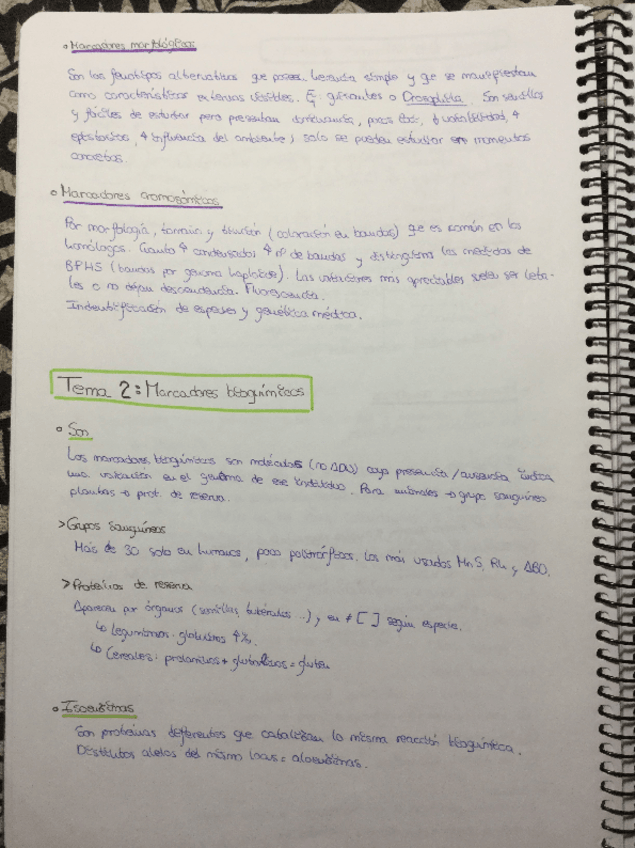 Marcadores morfológicos
Son los fenotipos alternativos que poseen herencia simple y qe se manifiestan
como características externas visibles. Ej guisantes o Drosophila. Son sencillos
y fáciles de estudiar pero presentan dominancia, pocos loci, variabilidad, ↑
epistasias, ↑ influencia del ambiente y solo se pueden estudiar en momentos
concretos.
Marcadores cromosómicos
Por morfología, tamaño y tinción (coloración en bandas) qe es común en los
homólogos. Cuanto condensados nº de bandas y distinguimos las medidas de
BPHS (bandas por genoma haploide). Las variaciones más apreciables suelen ser leta-
les o no dejan descendencia. Fluorescencia.
Indentificación de especies y genética médica.
Tema 2: Marcadores bioquímicos
Son
Los marcadores bioquímicos son moléculas (no ADN) cuya presencia/ausencia indica
una variación en el genoma de ese individuo. Para animales → grupo sanguíneo
plantas → prot. de reserva.
> Grupos sanguíneos
Más de 30 solo en humanos, poco polimórficos. Los más usados MnS, Rh y ABO.
> Proteínas de reserva
Aparecen por órganos (semillas tubérculos ...) y en ≠ [ ] según especie.
↳ Leguminosas: globulinas
↳ Cereales: prolaminas + glutelinas = gluten
Isoenzimas
Son proteínas diferentes que catalizan la misma reacción bioquímica.
Distintos alelos del mismo locus = aloenzimas.